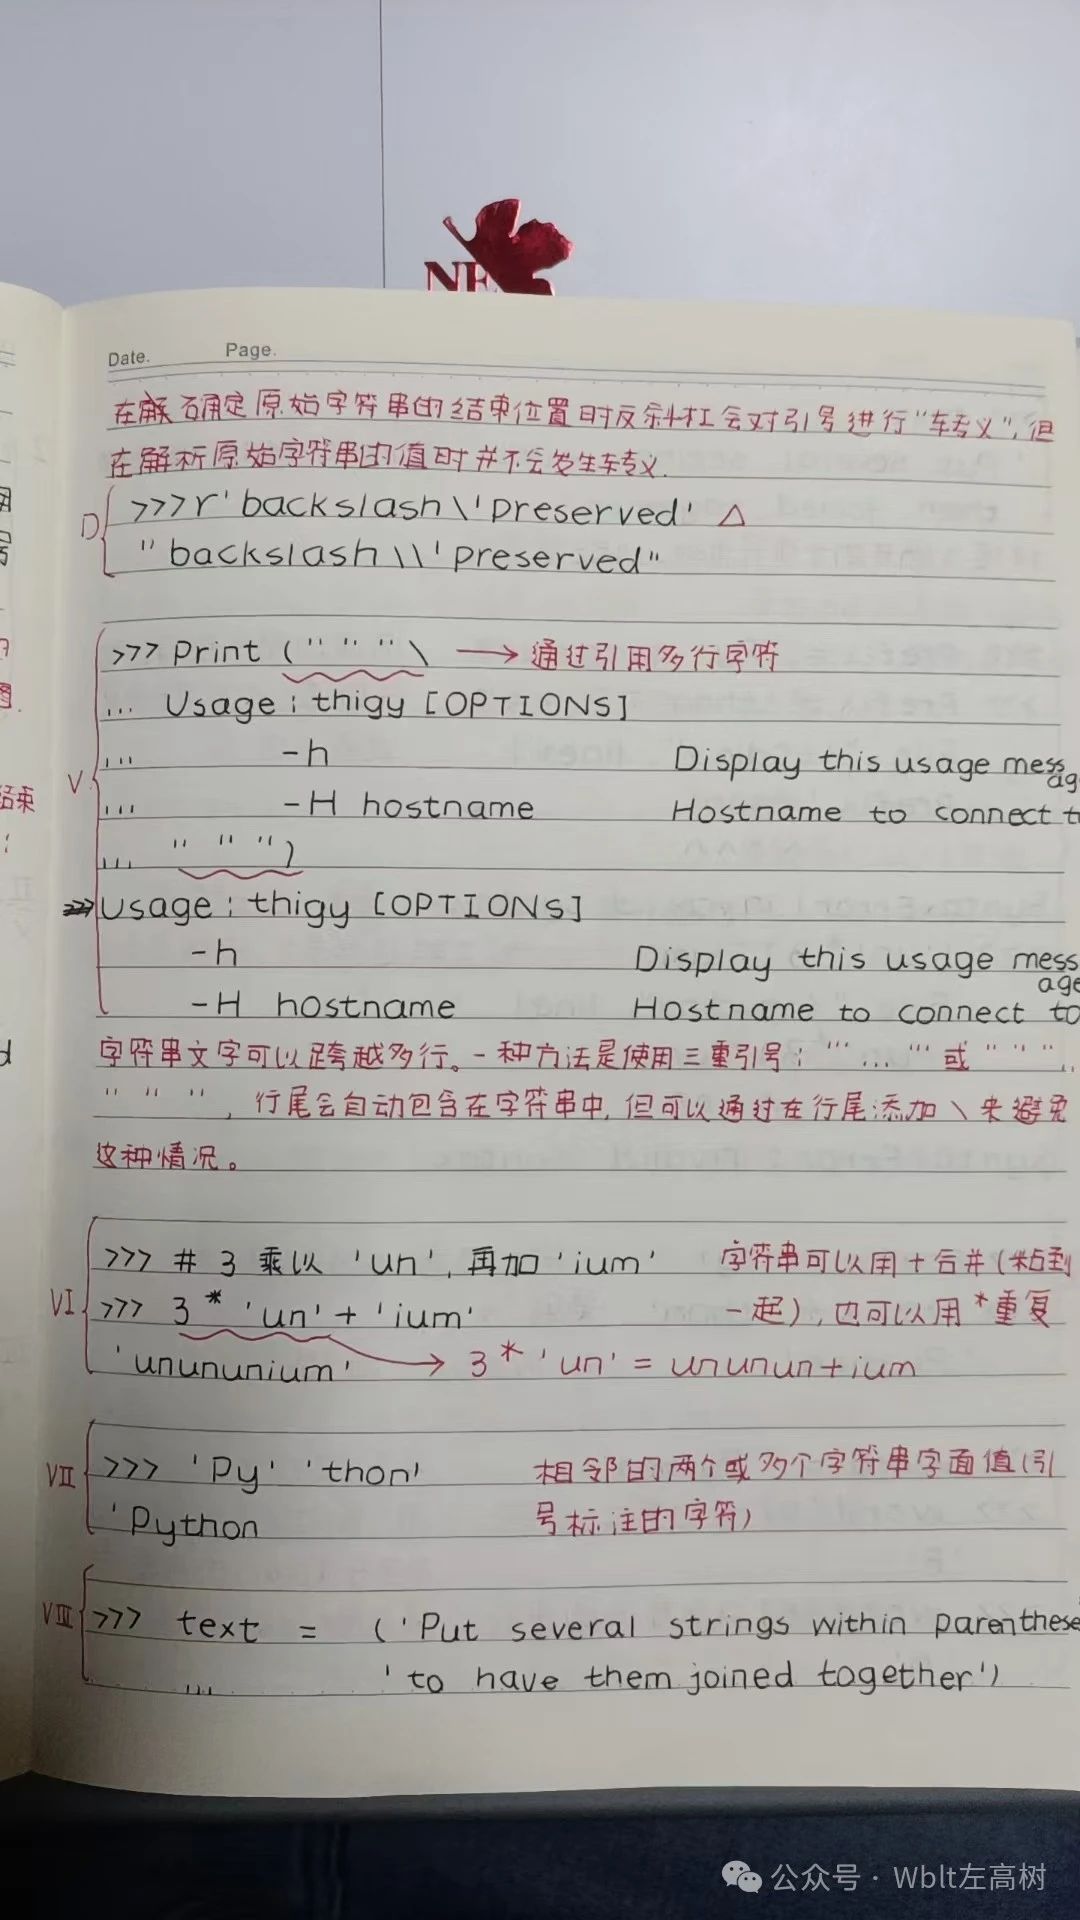 NE
Date. Page.
在确定原始字符串的结束位置时反斜杠会对引号进行"转义",但
在解析原始字符串的值时并不会发生转义.
D
>>>r'backslash\'preserved' △
"backslash\\'preserved"
>>> Print ("""\ → 通过引用多行字符
... Usage: thigy [OPTIONS]
... -h Display this usage message
V
... -H hostname Hostname to connect to
... """)
>>> Usage: thigy [OPTIONS]
-h Display this usage message
-H hostname Hostname to connect to
字符串文字可以跨越多行。一种方法是使用三重引号: """...""" 或 """..
""", 行尾会自动包含在字符串中,但可以通过在行尾添加 \ 来避免
这种情况。
>>> # 3 乘以 'un', 再加 'ium' 字符串可以用+合并(粘到
VI >>> 3 * 'un' + 'ium' 一起),也可以用*重复
'unununium' → 3* 'un' = ununun+ium
VII >>> 'Py' 'thon' 相邻的两个或多个字符串字面值(引
'Python 号标注的字符)
VIII >>> text = ('Put several strings within parenthese
... 'to have them joined together')
公众号 · Wblt左高树